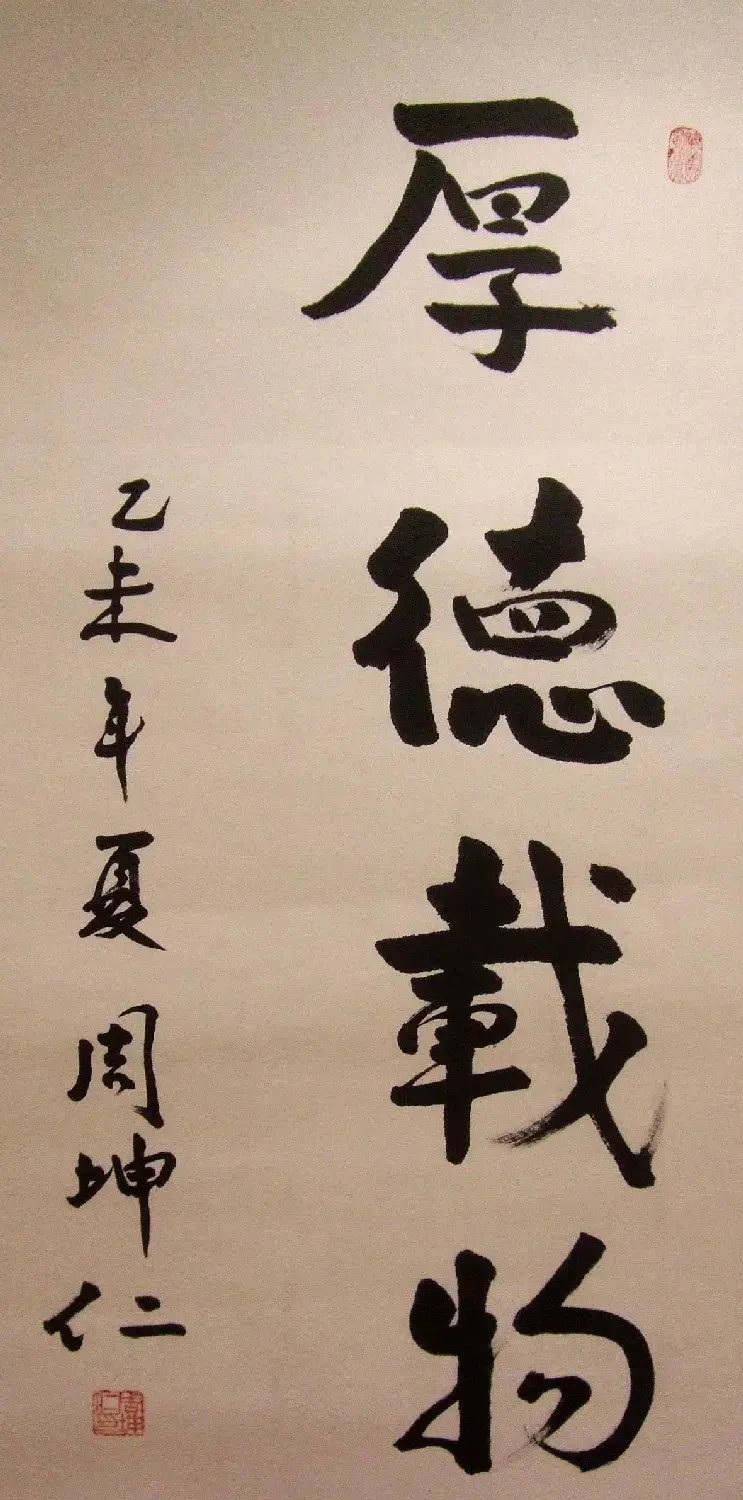 厚德載物
乙未年夏周坤仁